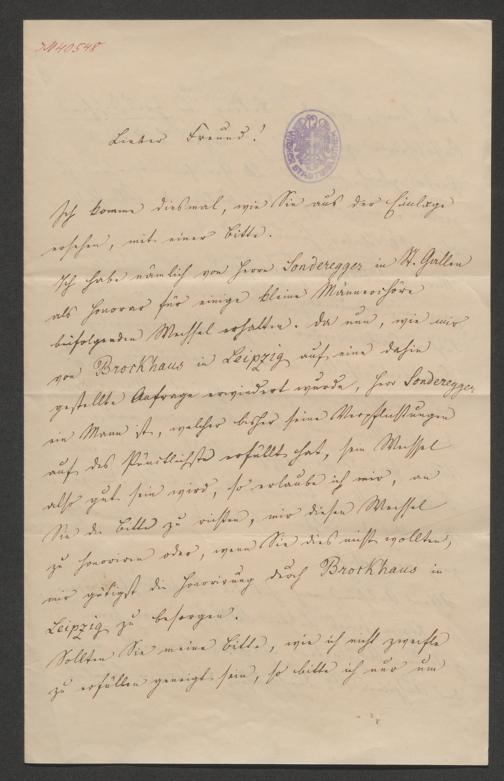 JN 40548
WIENER STADTBIBLIOTHEK
Lieber Freund!
Ich komme diesmal, wie Sie aus der Einlage
ersehen, mit einer Bitte.
Ich habe nämlich von Herrn Sonderegger in St. Gallen
als Honorar für einige kleine Männerchöre
beifolgenden Wechsel erhalten. Da nun, wie mir
von Brockhaus in Leipzig auf eine dahin
gestellte Anfrage erwiedert wurde, Herr Sonderegger
ein Mann ist, welcher bisher seine Verpflichtungen
auf das Pünktlichste erfüllt hat, sein Wechsel
also gut sein wird, so erlaube ich mir, an
Sie die Bitte zu richten, mir diesen Wechsel
zu honoriren oder, wenn Sie dies nicht wollten,
mir gütigst die Honorirung durch Brockhaus in
Leipzig zu besorgen.
Sollten Sie meine Bitte, wie ich nicht zweifle
zu erfüllen geneigt sein, so bitte ich nur um